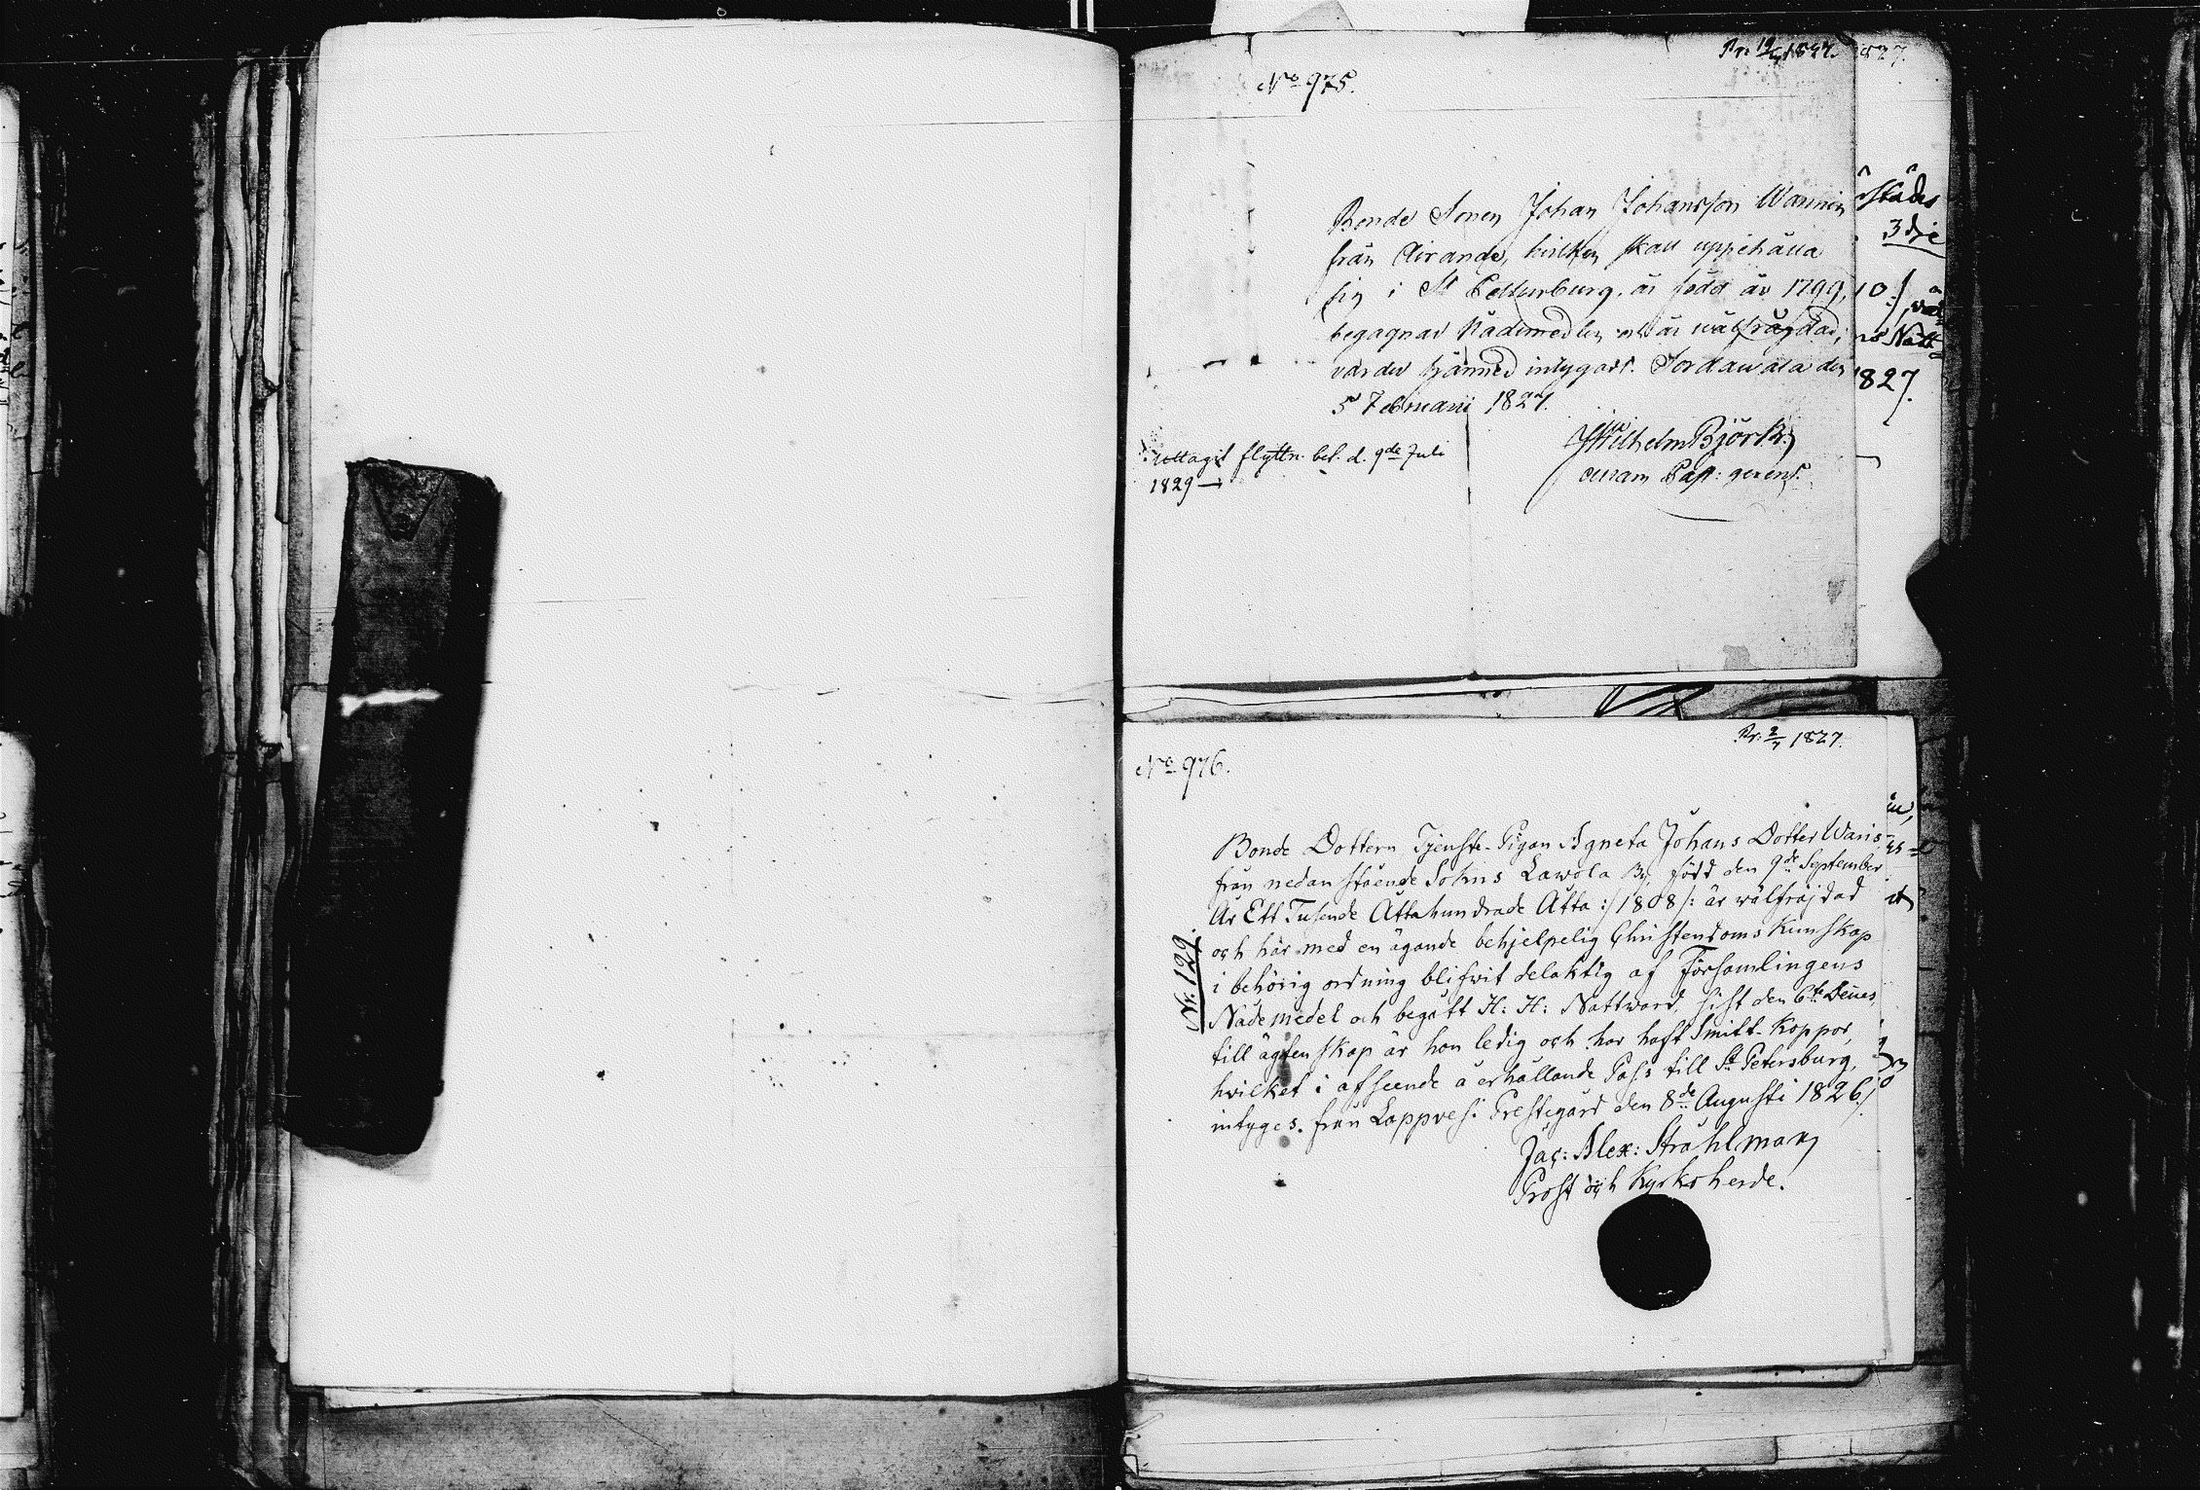 No 975.
Pr. 19/4 1827.
Bonde Sonen Johan Johansson Wänninen
från Airanda, hvilken skall uppehålla
sig i St Petturburg, är född år 1799,
begagnar Nådemedlen och är wälfrägdad;
varder härmed intygadt. Sordawala den
5 Februarii 1827.
Wilhelm Björk.
curam Past: gerens.
Uttagit flyttn. bet. d. 9de Juli
1829
rstädes
3dje
10:/
ns Natt=
1827.
No 976.
Pr. 2/7 1827.
Nr. 129.
Bonde Dottern Tjenste-Pigan Agneta Johans Dotter Waris
från nedan stående Sokns Lawola By, född den 9de September
År Ett Tusende Åttahundrade Åtta :/1808/: är wälfräjdad
och här med en ägande behjelpelig Christendoms Kunskap
i behörig ordning blifwit delaktig af Församlingens
Nådemedel och begått H: H: Nattward, sist den 6te Denes,
till ägtenskap är hon ledig och har haft Smitt-Koppor,
hvilket i afseende å erhållande Pass till St Petersburg,
intyges. från Lappvesi Prestegård den 8de Augusti 1826./
Jac: Alex: Stråhlman
Prost och Kyrkoherde.